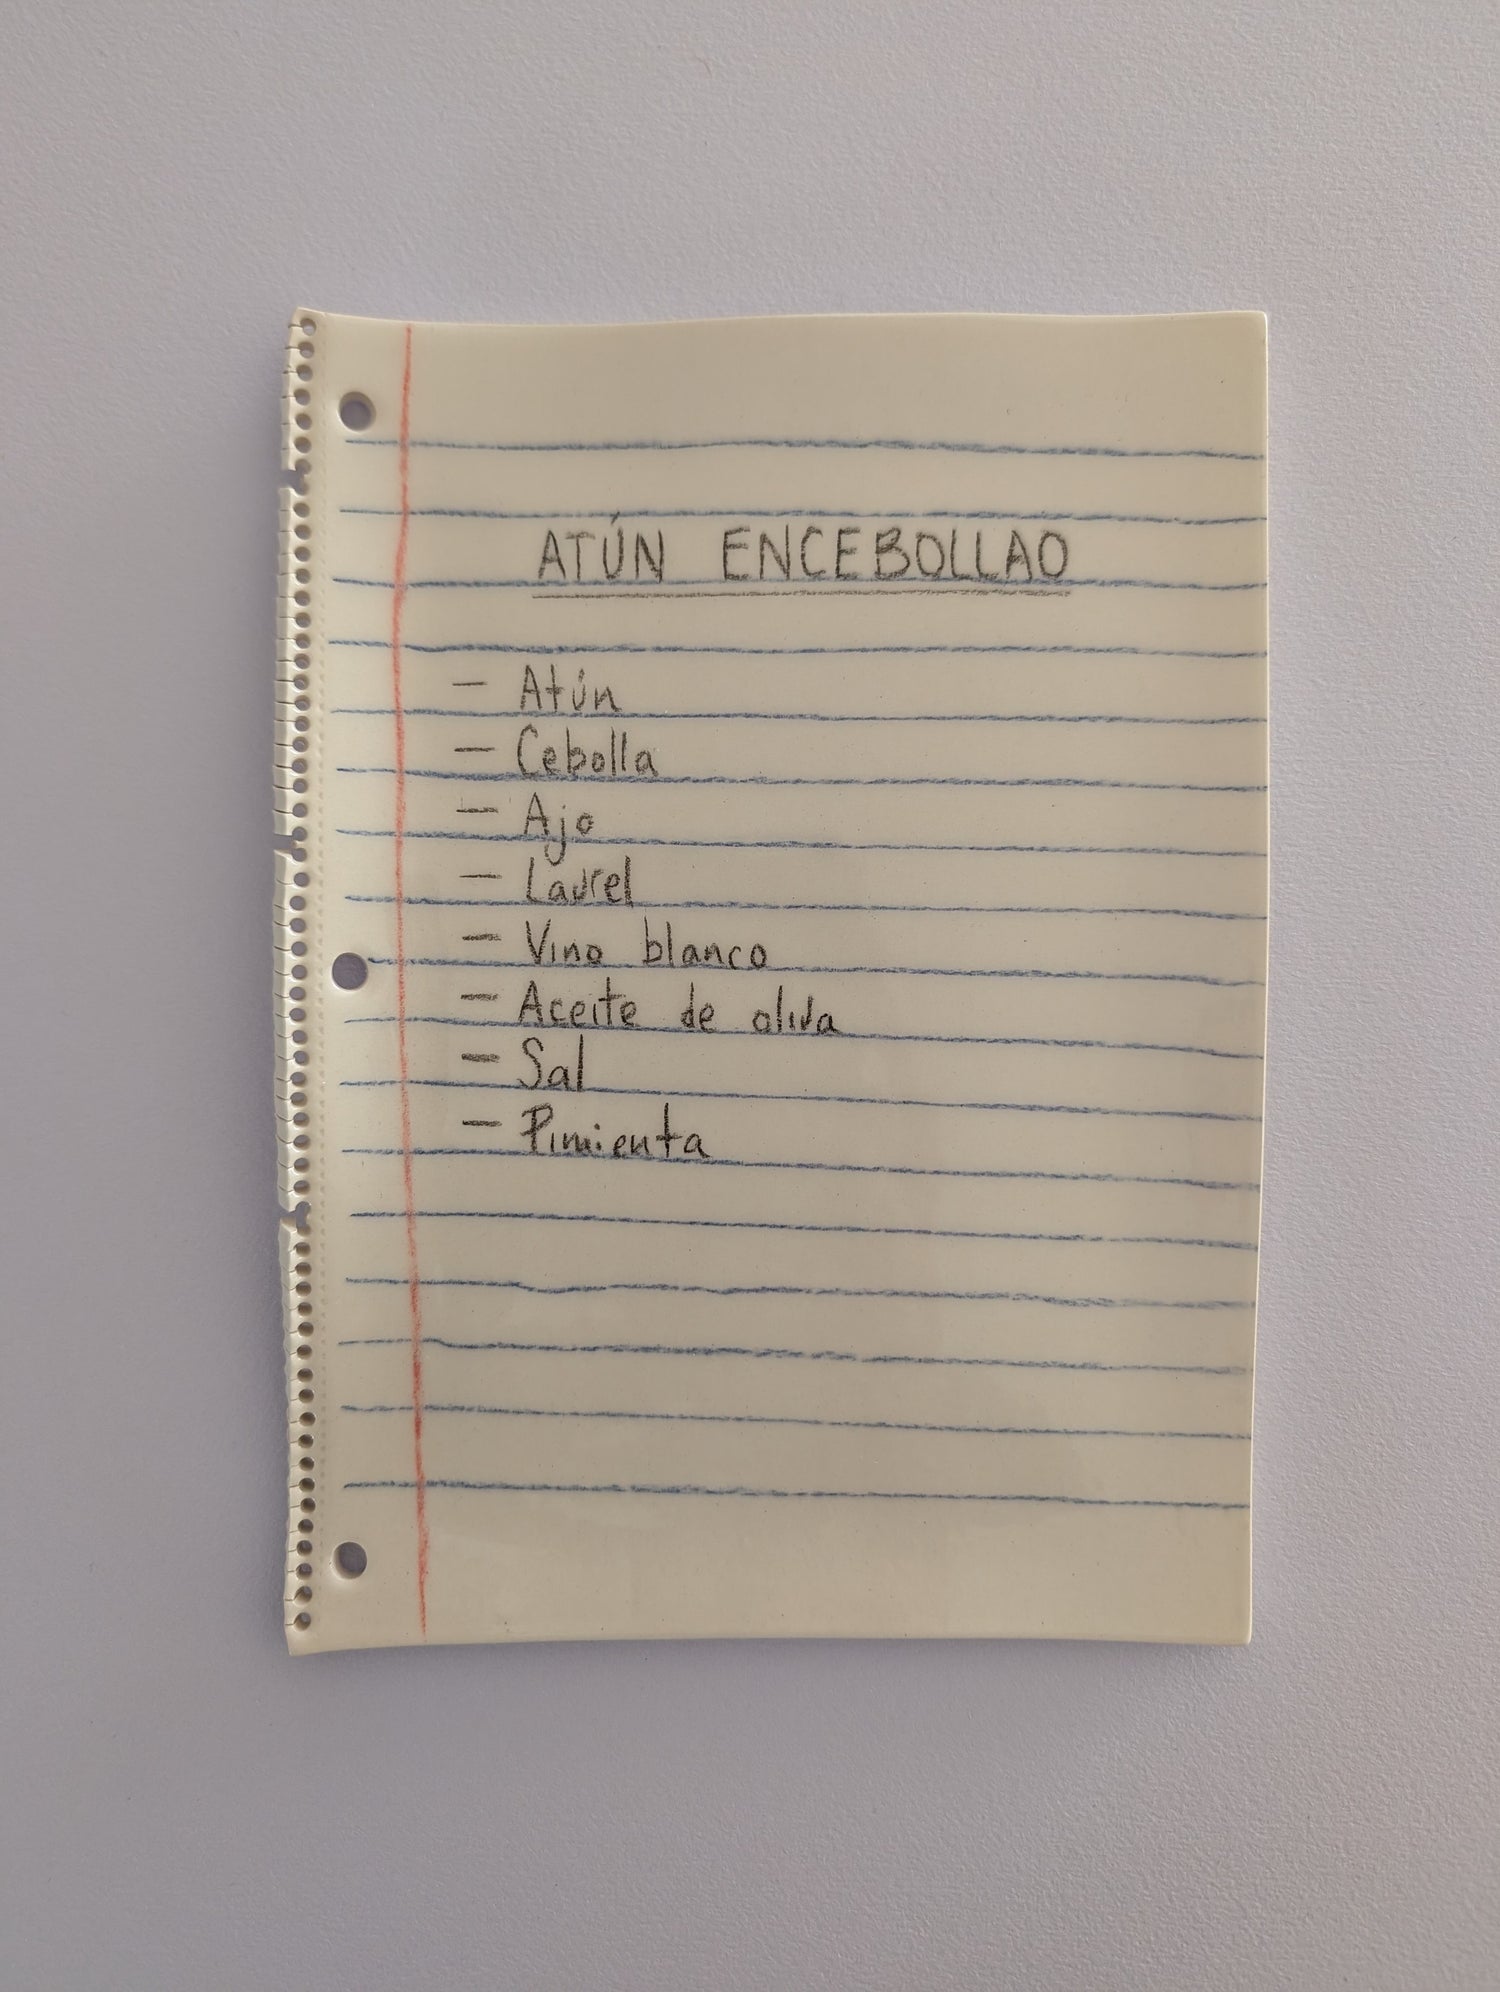 ATÚN ENCEBOLLAO
- Atún
- Cebolla
- Ajo
- Laurel
- Vino blanco
- Aceite de oliva
- Sal
- Pimienta